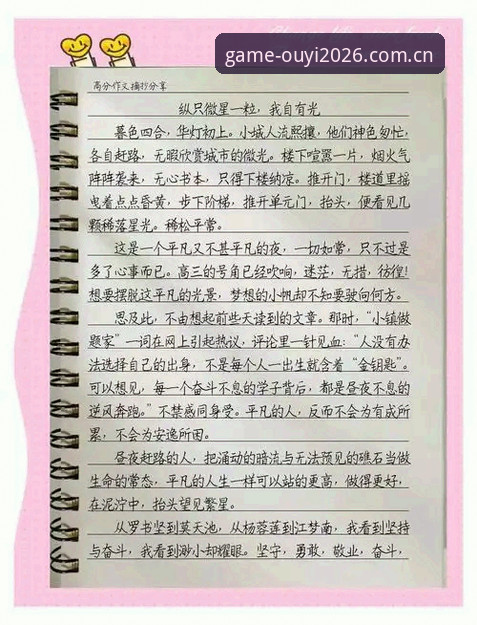 game-ouyi2026.com.cn
高分作文摘抄分享
纵只微星一粒，我自有光
暮色四合，华灯初上。小城人流熙攘，他们神色匆忙，
各自赶路，无暇欣赏城市的微光。楼下喧嚣一片，烟火气
阵阵袭来，无心书本，只得下楼纳凉。推开门，楼道里摇
曳着点点昏黄，步下阶梯，推开单元门，抬头，便看见几
颗稀落星光。稀松平常。
这是一个平凡又不甚平凡的夜，一切如常，只不过是
多了心事而已。高三的号角已经吹响，迷茫，无措，彷徨!
想要摆脱这平凡的光景，梦想的小帆却不知要驶向何方。
思及此，不由想起前些天读到的文章。那时，“小镇做
题家”一词在网上引起热议，评论里一针见血：“人没有办
法选择自己的出身，不是每个人一出生就含着“金钥匙”。
可以想见，每一个奋斗不息的学子背后，都是昼夜不息的
逆风奔跑。”不禁感同身受。平凡的人，反而不会为有成所
累，不会为安逸所困。
昼夜赶路的人，把涌动的暗流与无法预见的礁石当做
生命的常态，平凡的人生一样可以站的更高，做得更好，
在泥泞中，抬头望见繁星。
从罗书坚到莫天池，从杨蓉莲到江梦南，我看到坚持
与奋斗，我看到渺小却耀眼。坚守，勇敢，敬业，奋斗，